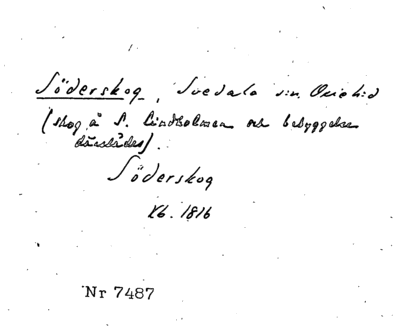 Söderskog, Svedala sn. Oxie hd
(skog å S. Lindholmen och bebyggelse
därstädes).
Söderskog
Kb. 1816
Nr 7487